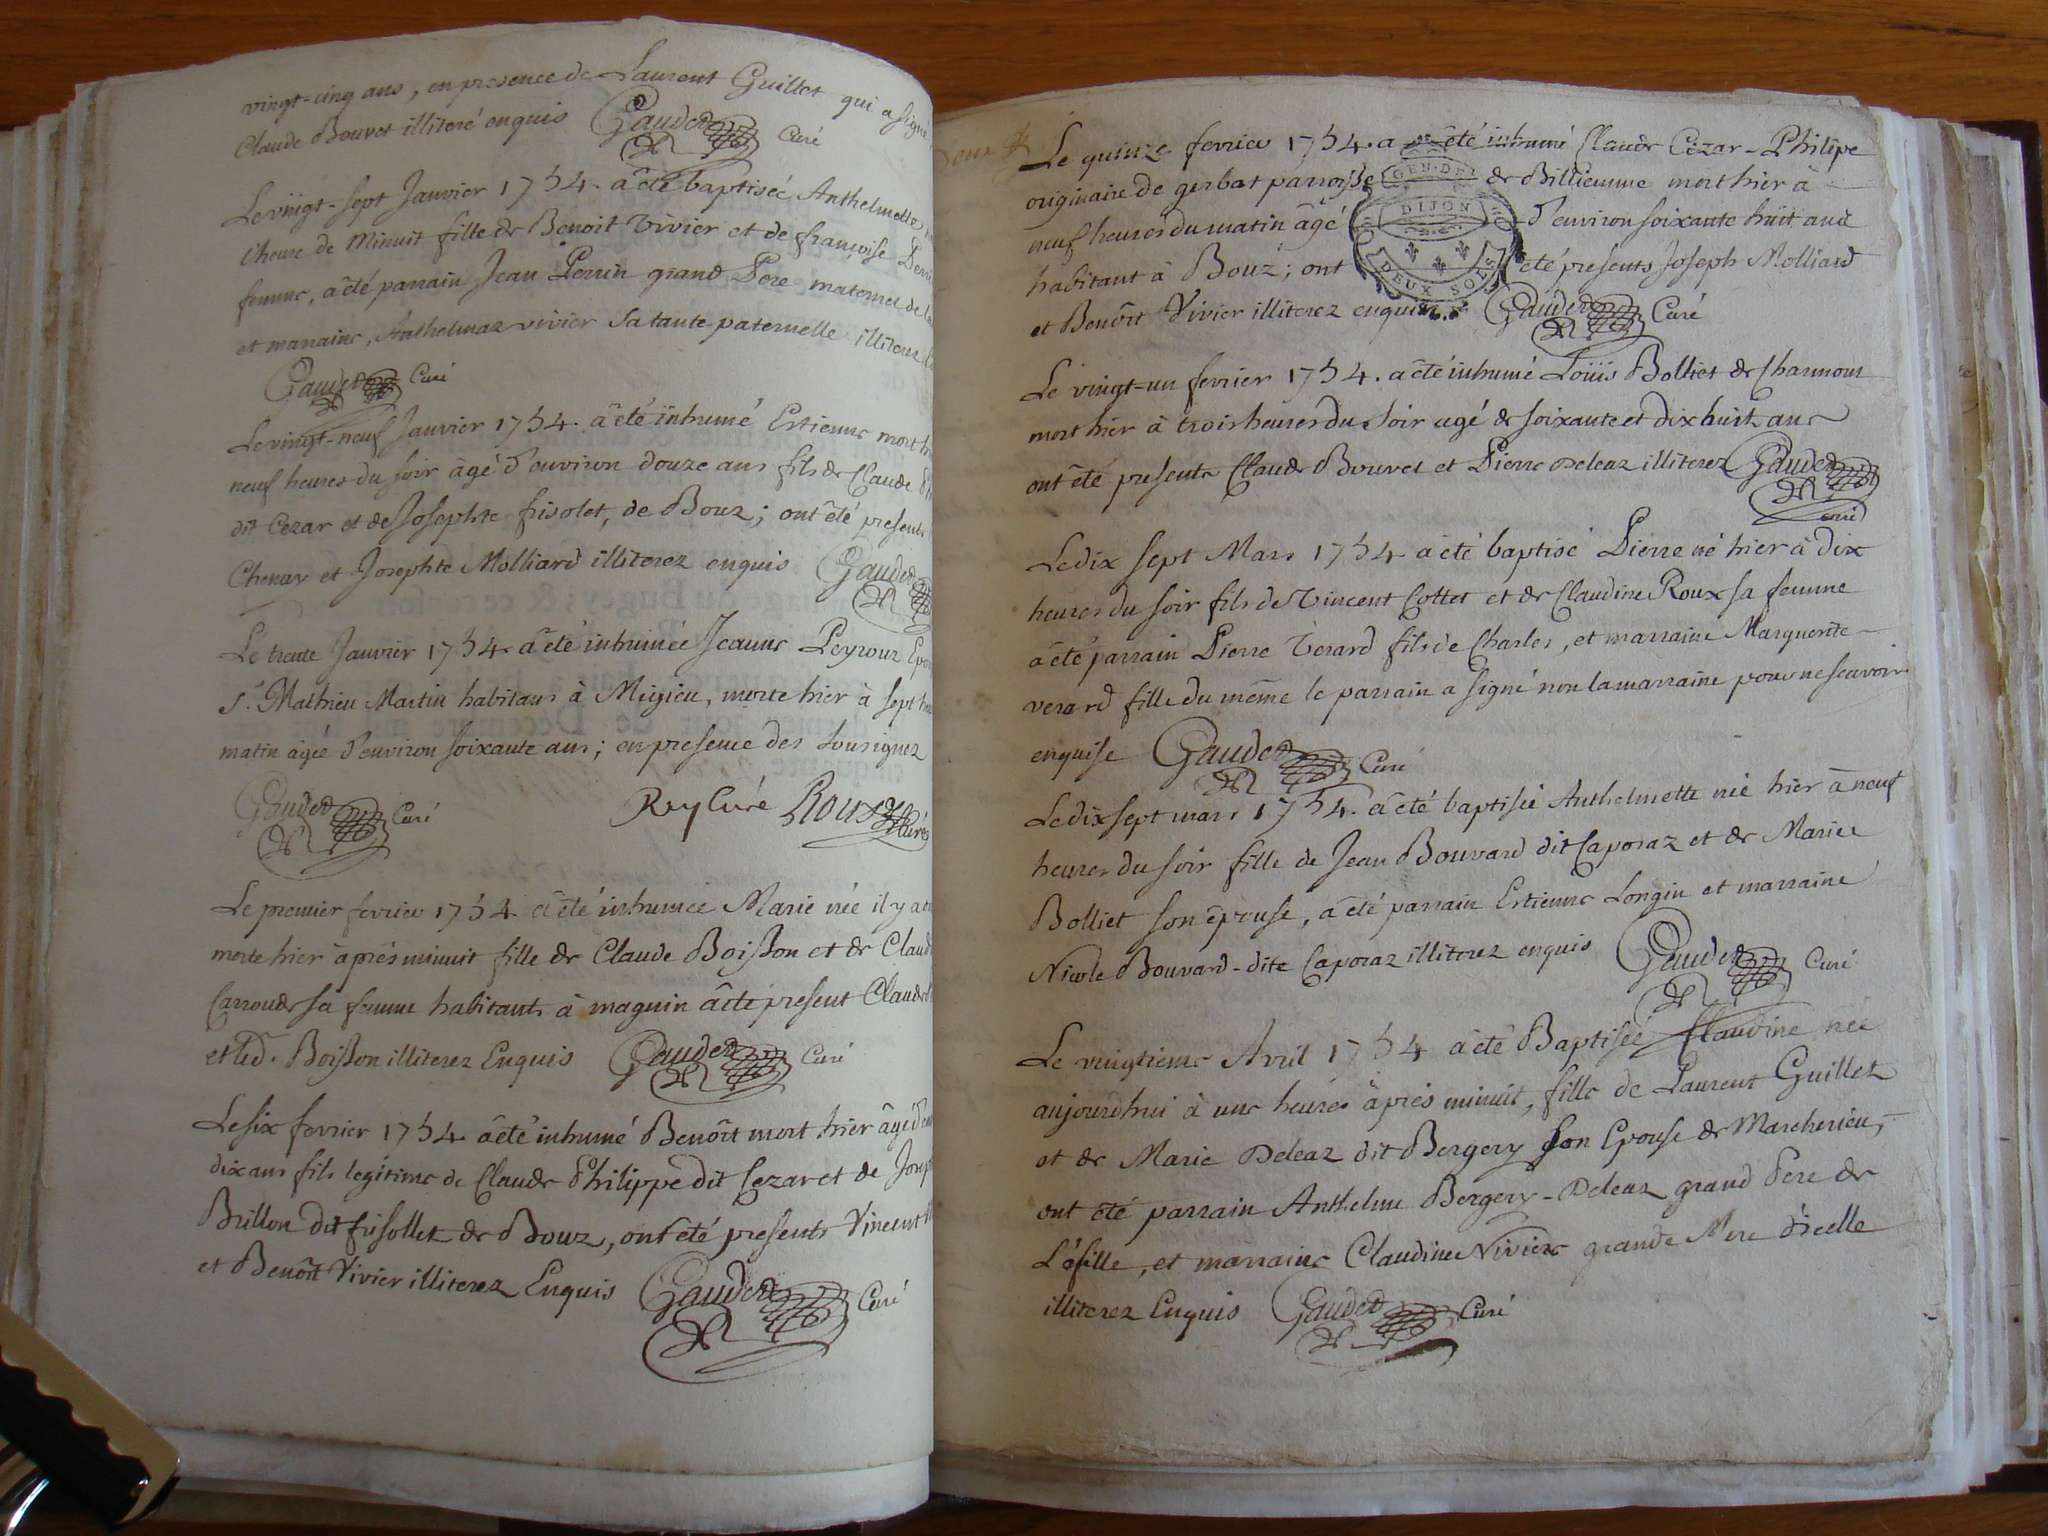 vingt-cinq ans, en presence de Laurent Guillet qui a signé
Claude Bouvet illiteré enquis Gaudet Curé
Le vingt-sept Janvier 1754. a été baptiseé Anthelmette
l'heure de Minuit fille de Benoit Vivier et de françoise Perrin
femme, a été parrain Jean Perrin grand Pere maternel de la
et marraine, Anthelmaz vivier Sa tante paternelle illiterez
Gaudet Curé
Le vingt-neuf Janvier 1754. a été inhumé Estienne mort
neuf heures du soir âgé d'environ douze ans fils de Claude
dit Cezar et de Josephte frisolet, de Bouz; ont été presents
Chenav et Josephte Molliard illiterez enquis Gaudet
Le trente Janvier 1754 a été inhumée Jeanne Peyrouz
Sr. Mathieu Martin habitans à Migieu, morte hier à sept
matin âgée d'environ soixante ans; en presence des sousignez
Gaudet Curé Rey Curé Roux Curé
Le premier fevrier 1754 a été inhumée Marie née il y a
morte hier àprés minuit fille de Claude Boisson et de
Carrouds sa femme habitants à magnin a été present Claude
et led. Boisson illiterez Enquis Gaudet Curé
Le six fevrier 1754 a été inhumé Benôit mort hier âgé
dix ans fils legitime de Claude Philippe dit Cezar et de
Brillon dit frisollet de Bouz, ont été presents Vincent
et Benôit Vivier illiterez Enquis Gaudet Curé
Le quinze fevrier 1754. a été inhumé Claude Cézar-Philipe
originaire de gerbat parroisse de Billieume mort hier à
neuf heures du matin âgé d'environ soixante huit ans
habitant à Bouz; ont été presents Joseph Molliard
et Benôit Vivier illiterez enquis. Gaudet Curé
GEN. DE
DIJON
DEUX SOLS
Le vingt-un fevrier 1754. a été inhumé Loüis Bolliet de Charmont
mort hier à trois heures du soir agé de soixante et dix huit ans
ont été presents Claude Bouvet et Pierre Deleaz illiterez Gaudet
curé
Le dix sept Mars 1754 a été baptisé Pierre né hier à dix
heures du soir fils de Vincent Collet et de Claudine Roux sa femme
a été parrain Pierre Verard fils de Charles, et marraine Marguerite
verard fille du même le parrain a signé non la marraine pour ne scavoir
enquise Gaudet Curé
Le dix sept mars 1754. a été baptisée Anthelmette née hier à neuf
heures du soir fille de Jean Bouvard dit Caporaz et de Marie
Bolliet son épouse, a été parrain Estienne Longin et marraine
Nicole Bouvard-dite Caporaz illiterez enquis Gaudet Curé
Le vingtieme Avril 1754 a été Baptisée Claudine née
aujourdhui à une heures àprés minuit, fille de Laurent Guillet
et de Marie Deleaz dit Bergery son Epouse de Marcherieu,
ont été parrain Anthelme Bergery-Deleaz grand Pere de
La fille, et marraine Claudine Vivier grande Mere d'icelle
illiterez Enquis Gaudet Curé